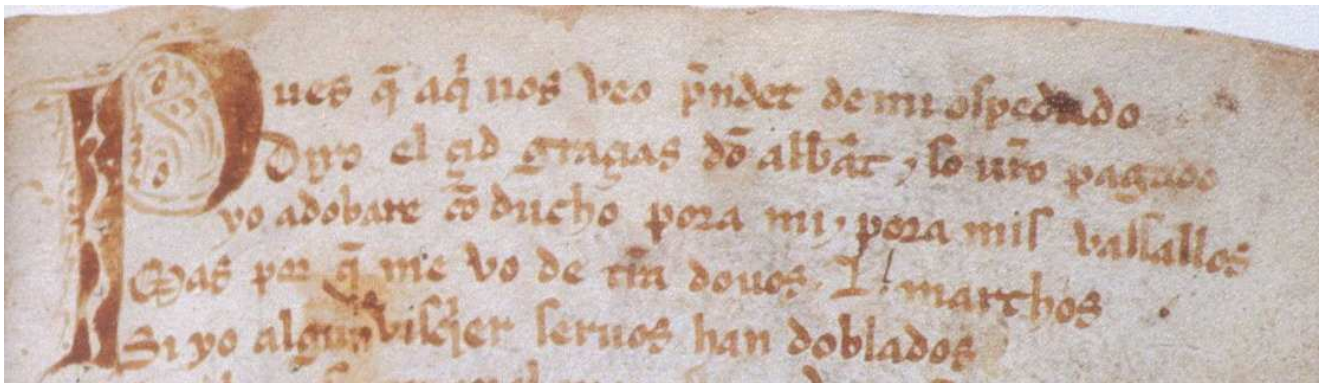 Pues q̄ aq̄ uos veo p̄ndet de mi ospedado
Dixo el çid graçias dō abbat ⁊ so ur̄o pagado
yo adobare cō ducho pora mi ⁊ pora mis vassallos
Mas por q̄ me vo de tr̄ra douos .L. marchos
Si yo algun visq̄er seruos han doblados